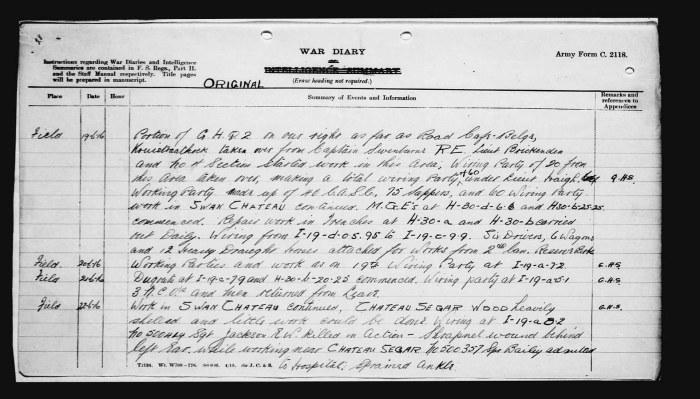 Instructions regarding War Diaries and Intelligence
Summaries are contained in F. S. Regs., Part II.
and the Staff Manual respectively. Title pages
will be prepared in manuscript.
WAR DIARY
OR
INTELLIGENCE SUMMARY
(Erase heading not required.)
Army Form C. 2118.
ORIGINAL
Place Date Hour Summary of Events and Information Remarks and references to Appendices
Field Portion of G.H.Q. 2 on our right as far as Road
taken over from Captain R.E. Lieut
and No 4 Section started work in this Area, Wiring Party of 50 from
this Area taken over, making a total wiring Party under Lieut
Working Party made up of 75 Sappers, and 60 Wiring Party
work in SWAN CHATEAU continued. M.G.E's at H-30-d-6-8 and H30-b-25-25
commenced. Repair work in Trenches at H-30-a and H-30-b carried
out Daily. Wiring from I-19-d-05.95 to I-19-c-9-9. Six Drivers, 6 Wagons
and 12 Heavy Draught horses attached for Works from 2nd Can. Reserve Park
Field Working Parties and work as on 19th Wiring Party at I-19-a-7.2. G.H.S.
Field Dugouts at I-19-c-79 and H-30-b-20-25 commenced. Wiring party at I-19-a-5-1 G.H.S.
3 N.C.O's and then returned from
Field Work in SWAN CHATEAU continued, CHATEAU SEGAR WOOD heavily G.H.S.
shelled and little work could be done. Wiring at I-19-a-8-2
Jackson R.W. killed in Action - Shrapnel wound behind
left Ear, while working near CHATEAU SEGAR No 500357 Spr Bailey admitted
to Hospital, Sprained Ankle.